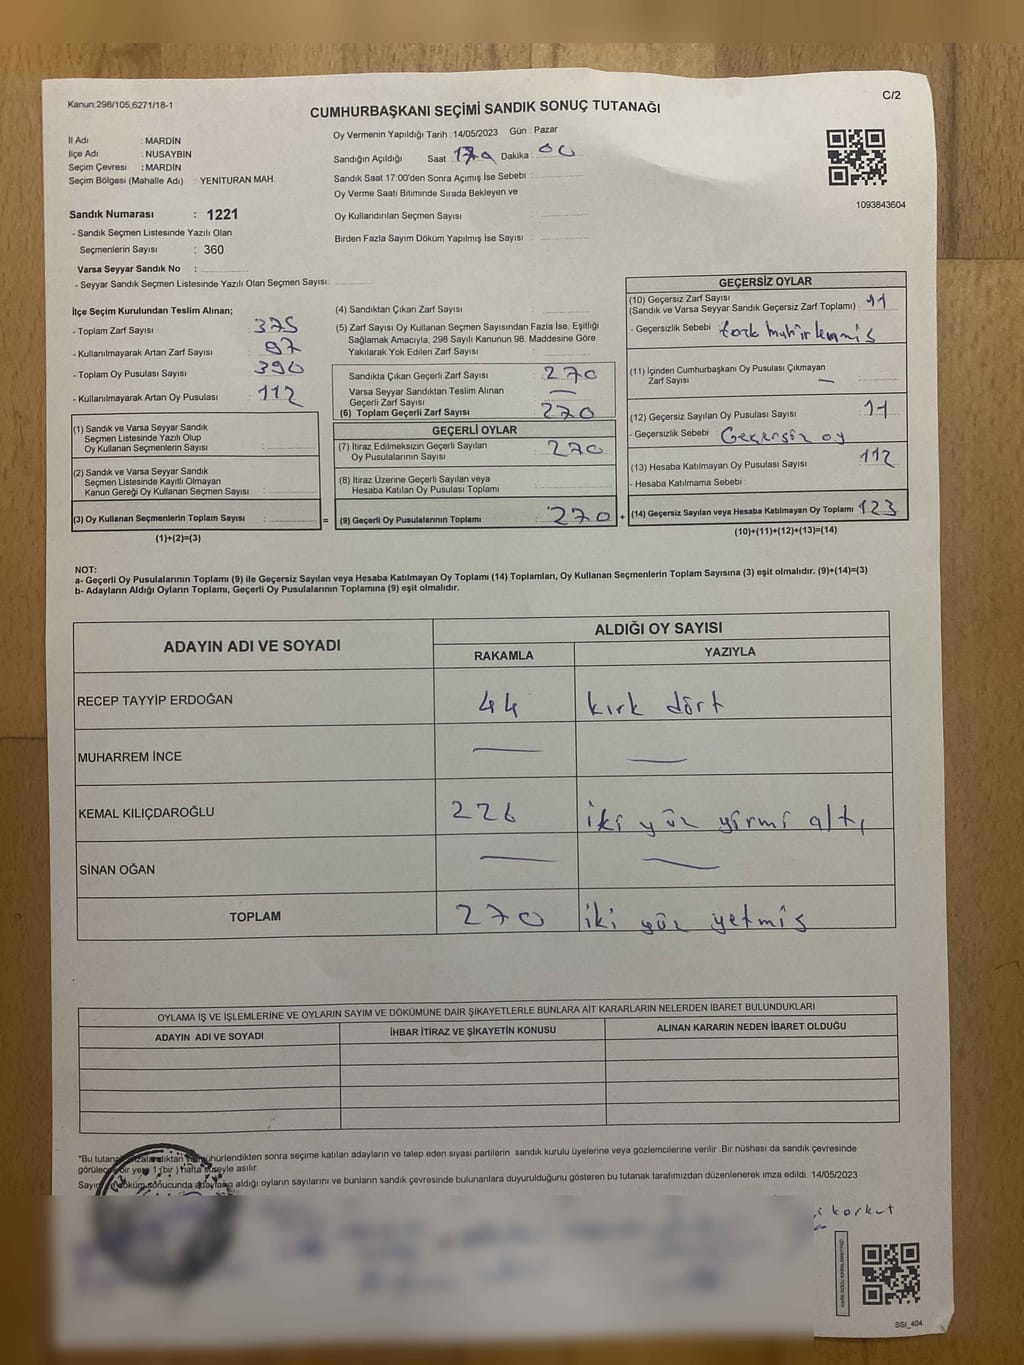 Kanun:298/105,6271/18-1
C/2
CUMHURBAŞKANI SEÇİMİ SANDIK SONUÇ TUTANAĞI
İl Adı : MARDİN
İlçe Adı : NUSAYBİN
Seçim Çevresi : MARDİN
Seçim Bölgesi (Mahalle Adı) : YENİTURAN MAH.
Oy Vermenin Yapıldığı Tarih : 14/05/2023 Gün : Pazar
Sandığın Açıldığı Saat : Dakika : 00
Sandık Saat 17:00'den Sonra Açımış İse Sebebi :
Oy Verme Saati Bitiminde Sırada Bekleyen ve
Oy Kullandırılan Seçmen Sayısı :
Birden Fazla Sayım Döküm Yapılmış İse Sayısı :
1093843604
Sandık Numarası : 1221
- Sandık Seçmen Listesinde Yazılı Olan
Seçmenlerin Sayısı : 360
Varsa Seyyar Sandık No :
- Seyyar Sandık Seçmen Listesinde Yazılı Olan Seçmen Sayısı:
İlçe Seçim Kurulundan Teslim Alınan;
- Toplam Zarf Sayısı : 375
- Kullanılmayarak Artan Zarf Sayısı : 97
- Toplam Oy Pusulası Sayısı : 390
- Kullanılmayarak Artan Oy Pusulası : 112
(1) Sandık ve Varsa Seyyar Sandık
Seçmen Listesinde Yazılı Olup
Oy Kullanan Seçmenlerin Sayısı :
(2) Sandık ve Varsa Seyyar Sandık
Seçmen Listesinde Kayıtlı Olmayan
Kanun Gereği Oy Kullanan Seçmen Sayısı :
(3) Oy Kullanan Seçmenlerin Toplam Sayısı : =
(1)+(2)=(3)
(4) Sandıktan Çıkan Zarf Sayısı :
(5) Zarf Sayısı Oy Kullanan Seçmen Sayısından Fazla İse, Eşitliği
Sağlamak Amacıyla; 298 Sayılı Kanunun 98. Maddesine Göre
Yakılarak Yok Edilen Zarf Sayısı :
Sandıkta Çıkan Geçerli Zarf Sayısı : 270
Varsa Seyyar Sandıktan Teslim Alınan
Geçerli Zarf Sayısı : —
(6) Toplam Geçerli Zarf Sayısı : 270
GEÇERLİ OYLAR
(7) İtiraz Edilmeksizin Geçerli Sayılan
Oy Pusulalarının Sayısı : 270
(8) İtiraz Üzerine Geçerli Sayılan veya
Hesaba Katılan Oy Pusulası Toplamı :
(9) Geçerli Oy Pusulalarının Toplamı : 270 +
GEÇERSİZ OYLAR
(10) Geçersiz Zarf Sayısı
(Sandık ve Varsa Seyyar Sandık Geçersiz Zarf Toplamı) : 11
- Geçersizlik Sebebi :
(11) İçinden Cumhurbaşkanı Oy Pusulası Çıkmayan
Zarf Sayısı : —
(12) Geçersiz Sayılan Oy Pusulası Sayısı : 11
- Geçersizlik Sebebi : Geçersiz oy
(13) Hesaba Katılmayan Oy Pusulası Sayısı : 112
- Hesaba Katılmama Sebebi :
(14) Geçersiz Sayılan veya Hesaba Katılmayan Oy Toplamı : 123
(10)+(11)+(12)+(13)=(14)
NOT:
a- Geçerli Oy Pusulalarının Toplamı (9) ile Geçersiz Sayılan veya Hesaba Katılmayan Oy Toplamı (14) Toplamları, Oy Kullanan Seçmenlerin Toplam Sayısına (3) eşit olmalıdır. (9)+(14)=(3)
b- Adayların Aldığı Oyların Toplamı, Geçerli Oy Pusulalarının Toplamına (9) eşit olmalıdır.
ADAYIN ADI VE SOYADI
ALDIĞI OY SAYISI
RAKAMLA YAZIYLA
RECEP TAYYİP ERDOĞAN 44 kırk dört
MUHARREM İNCE — —
KEMAL KILIÇDAROĞLU 226 iki yüz yirmi altı
SİNAN OĞAN — —
TOPLAM 270 iki yüz yetmiş
OYLAMA İŞ VE İŞLEMLERİNE VE OYLARIN SAYIM VE DÖKÜMÜNE DAİR ŞİKAYETLERLE BUNLARA AİT KARARLARIN NELERDEN İBARET BULUNDUKLARI
ADAYIN ADI VE SOYADI
İHBAR İTİRAZ VE ŞİKAYETİN KONUSU
ALINAN KARARIN NEDEN İBARET OLDUĞU
*Bu mühürlendikten sonra seçime katılan adayların ve talep eden siyasi partilerin sandık kurulu üyelerine veya gözlemcilerine verilir. Bir nüshası da sandık çevresinde
görülecek bir yere 1 (bir) hafta süreyle asılır.
döküm sonucunda adayların aldığı oyların sayılarını ve bunların sandık çevresinde bulunanlara duyurulduğunu gösteren bu tutanak tarafımızdan düzenlenerek imza edildi. 14/05/2023
korkut
SSI_404